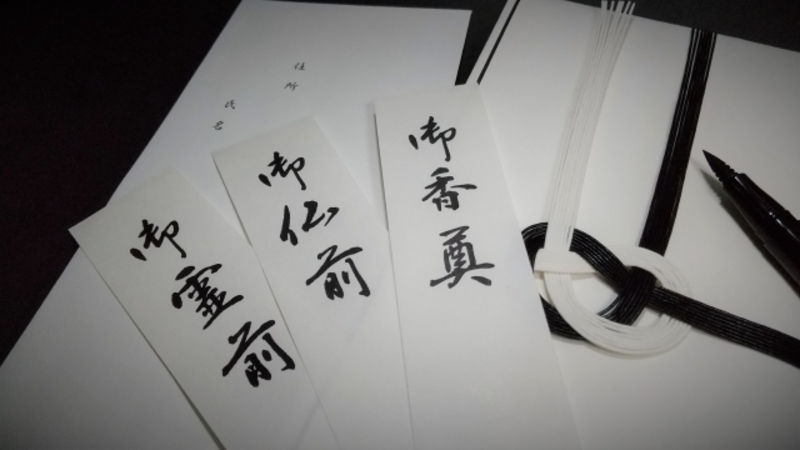 住所
氏名
御香奠
御仏前
御霊前